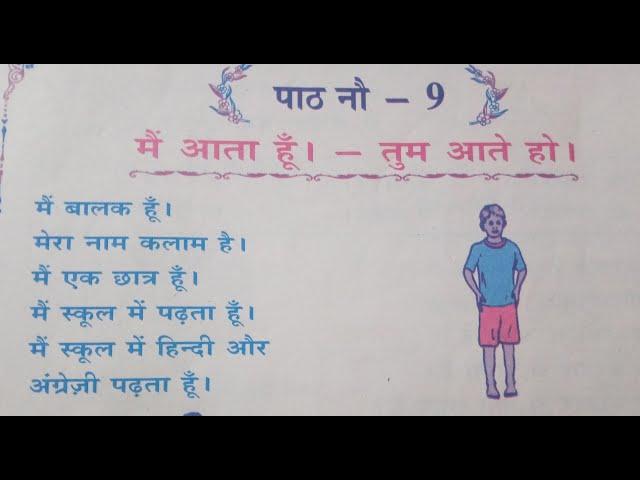 पाठ नौ – 9
मैं आता हूँ। – तुम आते हो।
मैं बालक हूँ।
मेरा नाम कलाम है।
मैं एक छात्र हूँ।
मैं स्कूल में पढ़ता हूँ।
मैं स्कूल में हिन्दी और
अंग्रेज़ी पढ़ता हूँ।